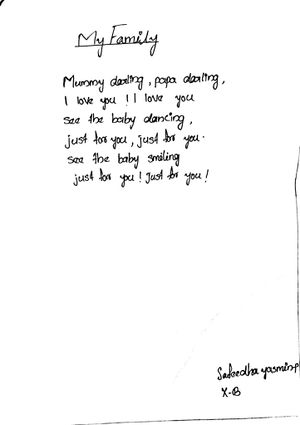 My Family
Mummy darling, papa darling,
I love you! I love you
see the baby dancing,
just for you, just for you.
see the baby smiling
just for you! Just for you!
yasmin.P
X-B